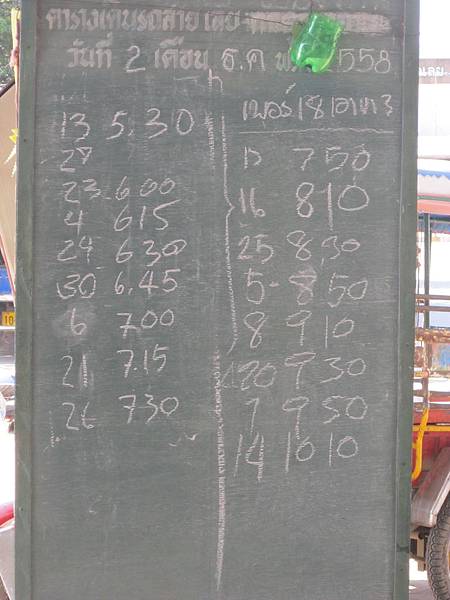 ตารางเดินรถสาย เลย
วันที่ 2 เดือน ธ.ค พ. 2558
13 5.30
29
23 6.00
4 615
29 630
30 6.45
6 7.00
21 7.15
26 730
เบอร์ 18
17 750
16 810
25 8.30
5 - 850
8 910
20 930
7 950
14 1010